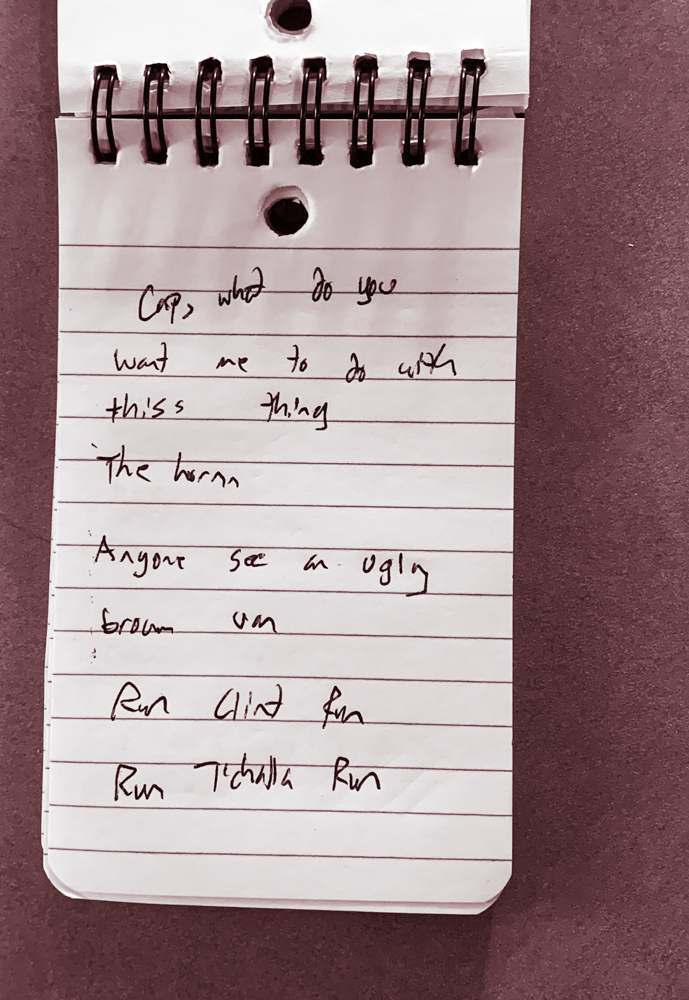 Cap, what do you
want me to do with
thiss thing
The hornn
Anyone see an ugly
brown van
Run Clint Run
Run T'challa Run